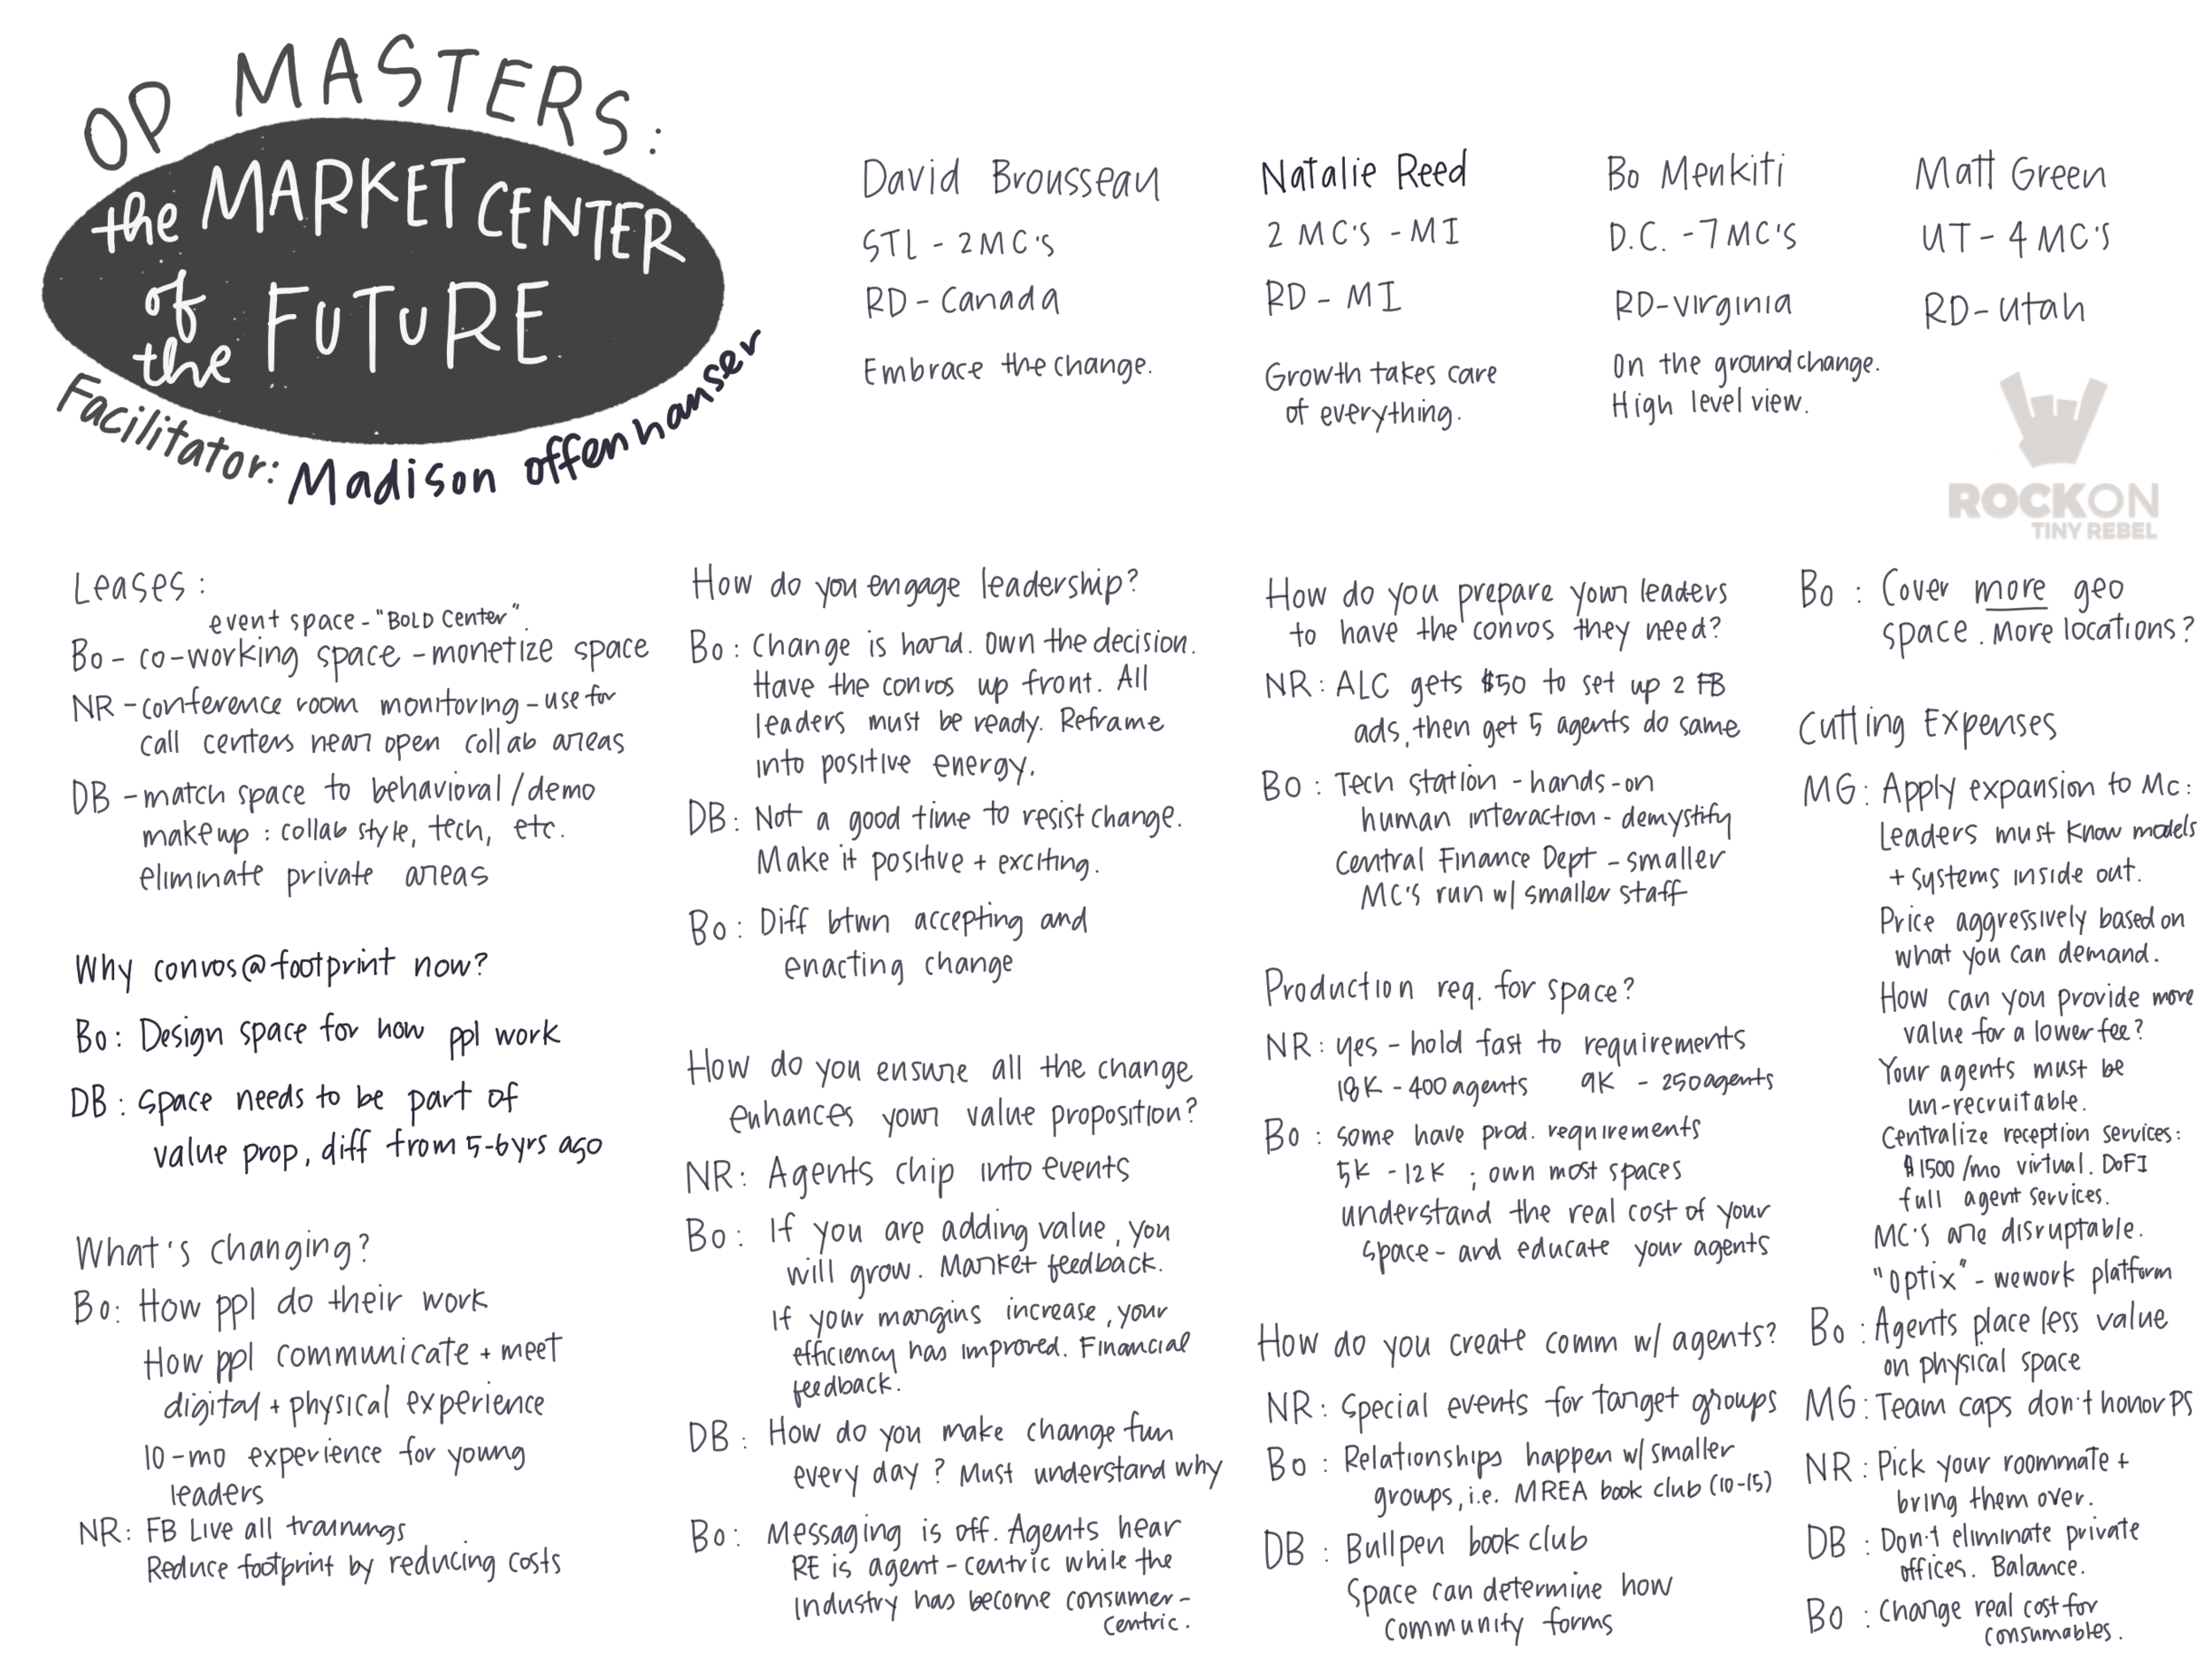 OP MASTERS:
the MARKET CENTER
of
the FUTURE
Facilitator: Madison offenhanser
David Brousseau
STL - 2 MC's
RD - Canada
Embrace the change.
Natalie Reed
2 MC's - MI
RD - MI
Growth takes care
of everything.
Bo Menkiti
D.C. - 7 MC's
RD - Virginia
On the ground change.
High level view.
Matt Green
UT - 4 MC's
RD - Utah
ROCKON
TINY REBEL
Leases:
event space - "BOLD Center".
Bo - co-working space - monetize space
NR - conference room monitoring - use for
call centers near open collab areas
DB - match space to behavioral / demo
makeup : collab style, tech, etc.
eliminate private areas
Why convos @ footprint now?
Bo: Design space for how ppl work
DB: space needs to be part of
value prop, diff from 5-6 yrs ago
What's changing?
Bo: How ppl do their work
How ppl communicate + meet
digital + physical experience
10-mo experience for young
leaders
NR: FB Live all trainings
Reduce footprint by reducing costs
How do you engage leadership?
Bo: Change is hard. Own the decision.
Have the convos up front. All
leaders must be ready. Reframe
into positive energy.
DB: Not a good time to resist change.
Make it positive + exciting.
Bo: Diff btwn accepting and
enacting change
How do you ensure all the change
enhances your value proposition?
NR: Agents chip into events
Bo: If you are adding value, you
will grow. Market feedback.
If your margins increase, your
efficiency has improved. Financial
feedback.
DB: How do you make change fun
every day? Must understand why
Bo: Messaging is off. Agents hear
RE is agent-centric while the
industry has become consumer-
centric.
How do you prepare your leaders
to have the convos they need?
NR: ALC gets $50 to set up 2 FB
ads, then get 5 agents do same
Bo: Tech station - hands-on
human interaction - demystify
Central Finance Dept - smaller
MC's run w/ smaller staff
Production req. for space?
NR: yes - hold fast to requirements
18K - 400 agents 9K - 250 agents
Bo: some have prod. requirements
5K - 12K ; own most spaces
understand the real cost of your
space - and educate your agents
How do you create comm w/ agents?
NR: Special events for target groups
Bo: Relationships happen w/ smaller
groups, i.e. MREA book club (10-15)
DB: Bullpen book club
Space can determine how
community forms
Bo: Cover more geo
space. More locations?
Cutting Expenses
MG: Apply expansion to MC:
Leaders must know models
+ systems inside out.
Price aggressively based on
what you can demand.
How can you provide more
value for a lower fee?
Your agents must be
un-recruitable.
Centralize reception services:
$1500/mo virtual. DoFI
full agent services.
MC's are disruptable.
"Optix" - wework platform
Bo: Agents place less value
on physical space
MG: Team caps don't honor PS
NR: Pick your roommate +
bring them over.
DB: Don't eliminate private
offices. Balance.
Bo: Change real cost for
consumables.